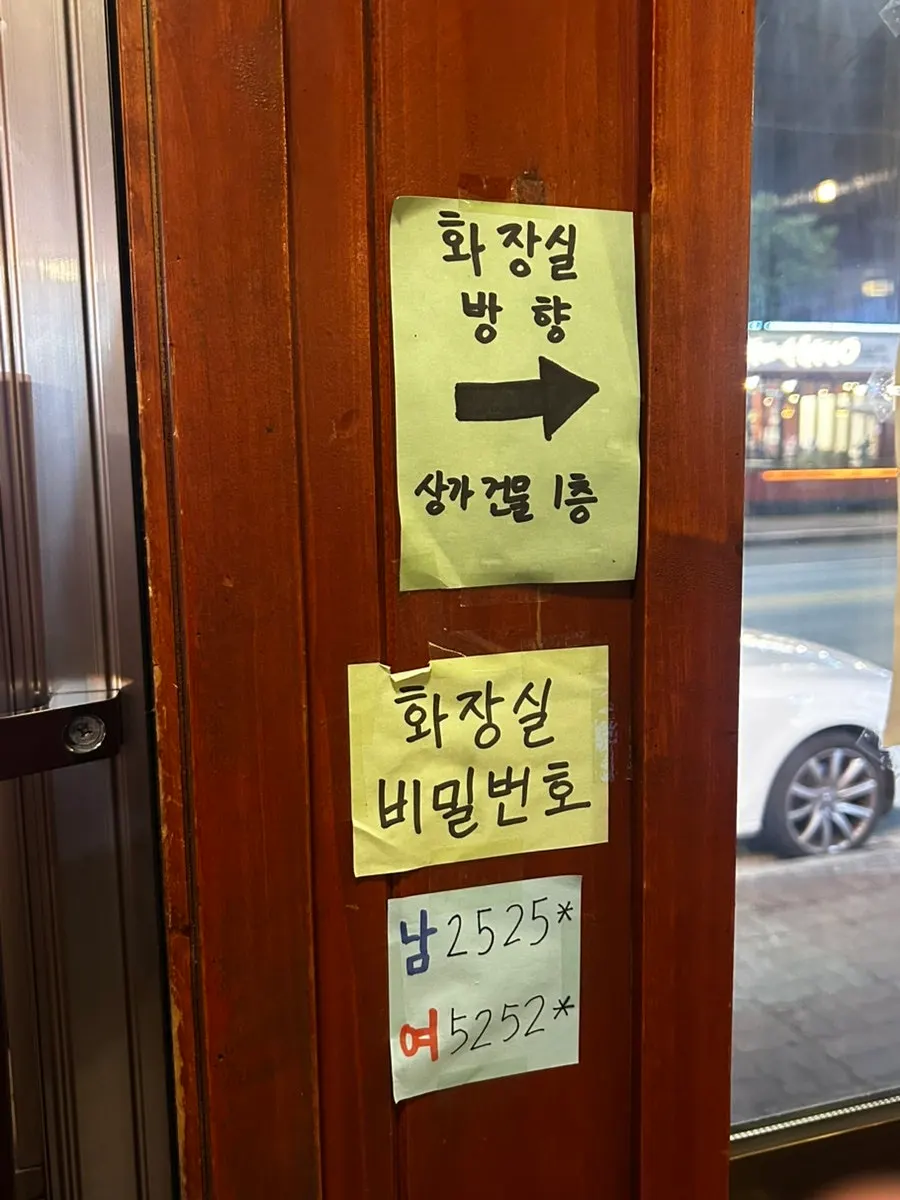 화장실
방향
상가 건물 1층
화장실
비밀번호
남 2525*
여 5252*